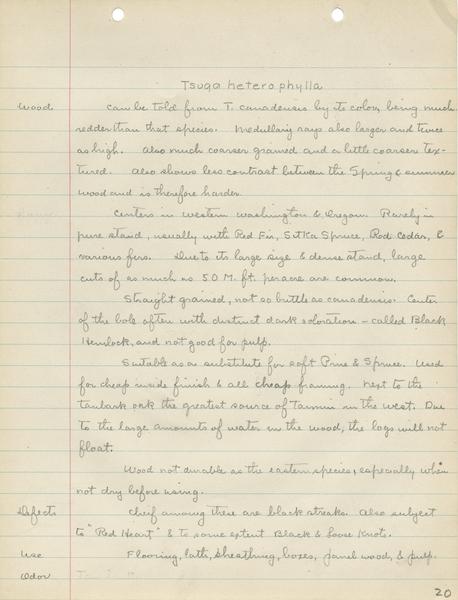 Tsuga heterophylla
Wood can be told from T. canadensis by its color, being much
redder than that species. Medullary rays also larger and twice
as high. Also much coarser grained and a little coarser tex-
tured. Also shows less contrast between the Spring & summer
wood and is therefore harder.
Centers in western Washington & Oregon. Rarely in
pure stand, usually with Red Fir, Sitka Spruce, Red Cedar, &
various firs. Due to its large size & dense stand, large
cuts of as much as 50 M. ft. per acre are common.
Straight grained, not as brittle as canadensis. Center
of the bole often with distinct dark coloration - called Black
Hemlock, and not good for pulp.
Suitable as a substitute for soft Pine & Spruce. Used
for cheap inside finish & all cheap framing. Next to the
tanbark oak the greatest source of Tannin in the west. Due
to the large amounts of water in the wood, the logs will not
float.
Wood not durable as the eastern species, especially when
not dry before using.
Defects Chief among these are black streaks. Also subject
to "Red Heart" & to some extent Black & Loose Knots.
Use Flooring, lath, sheathing, boxes, panel wood, & pulp.
Odor
20